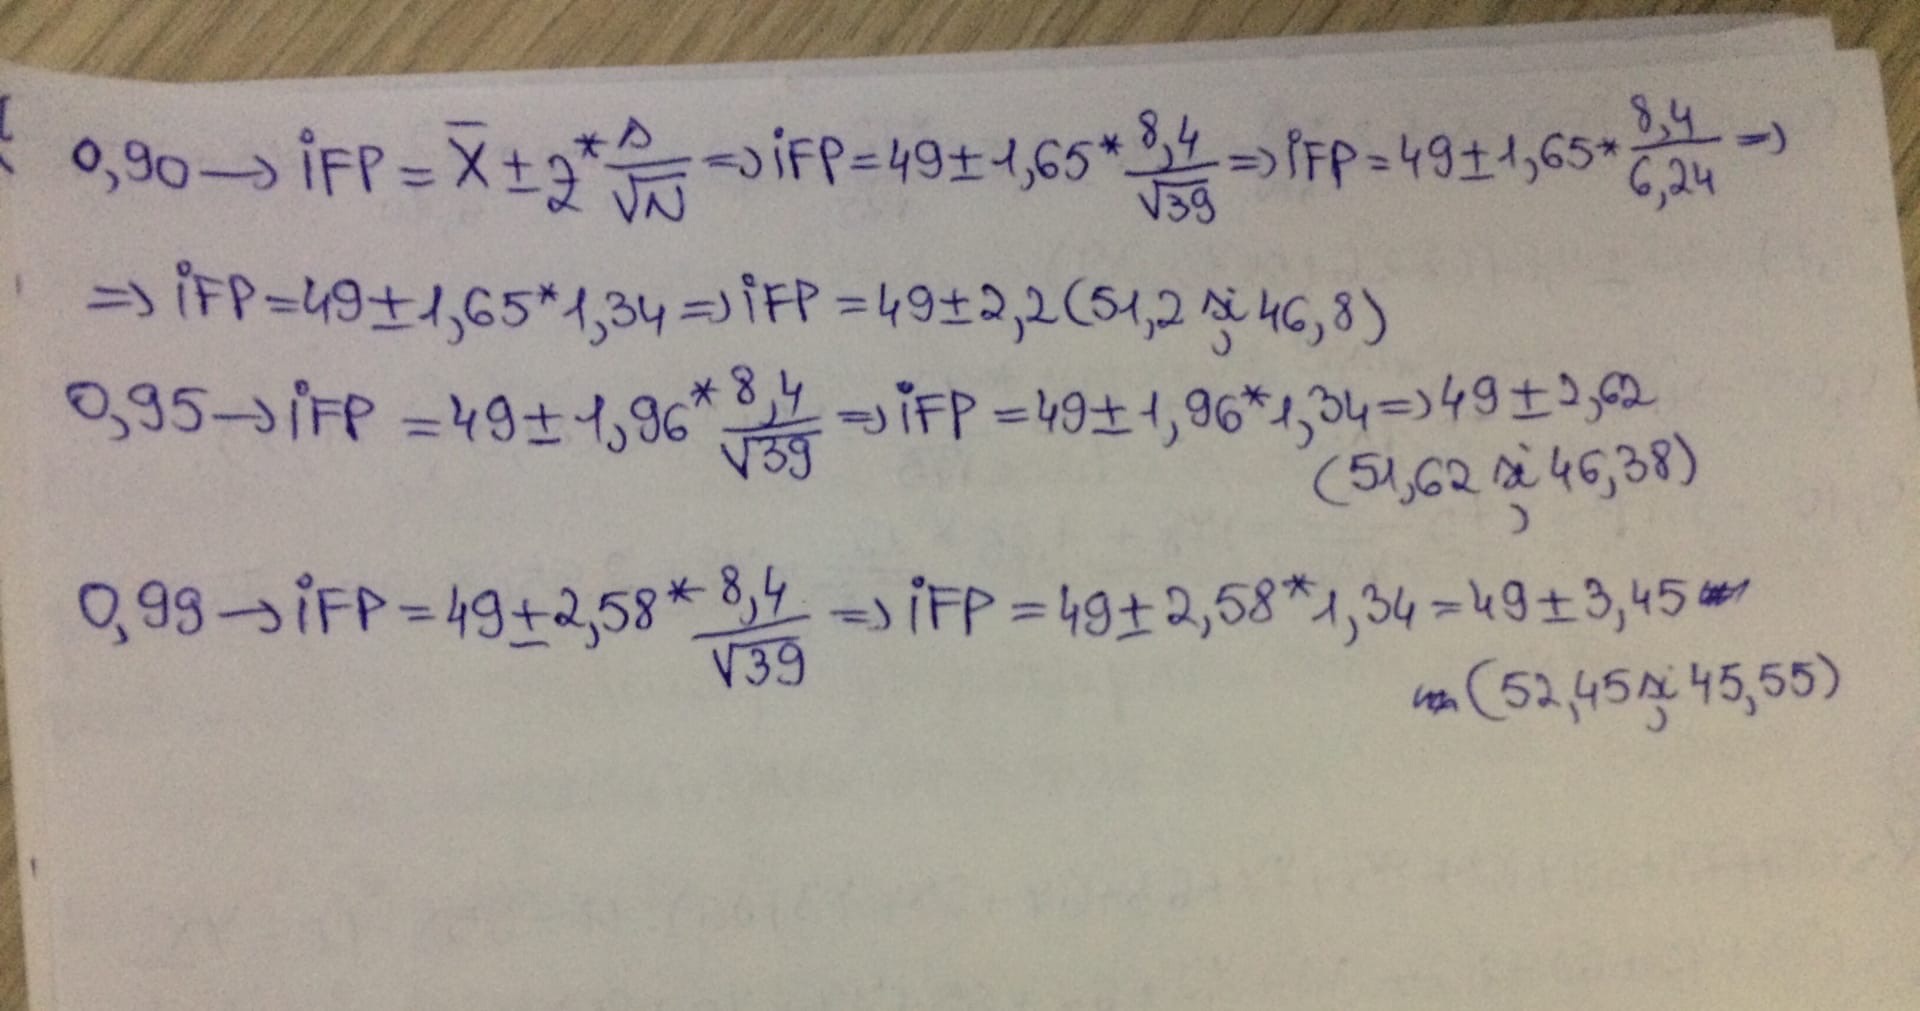 0,90 → iFP = X̄ ± z * s/√N => iFP = 49 ± 1,65 * 8,4/√39 => iFP = 49 ± 1,65 * 8,4/6,24 =>
=> iFP = 49 ± 1,65 * 1,34 => iFP = 49 ± 2,2 (51,2 și 46,8)
0,95 → iFP = 49 ± 1,96 * 8,4/√39 => iFP = 49 ± 1,96 * 1,34 => 49 ± 2,62
(51,62 și 46,38)
0,99 → iFP = 49 ± 2,58 * 8,4/√39 => iFP = 49 ± 2,58 * 1,34 = 49 ± 3,45
(52,45 și 45,55)